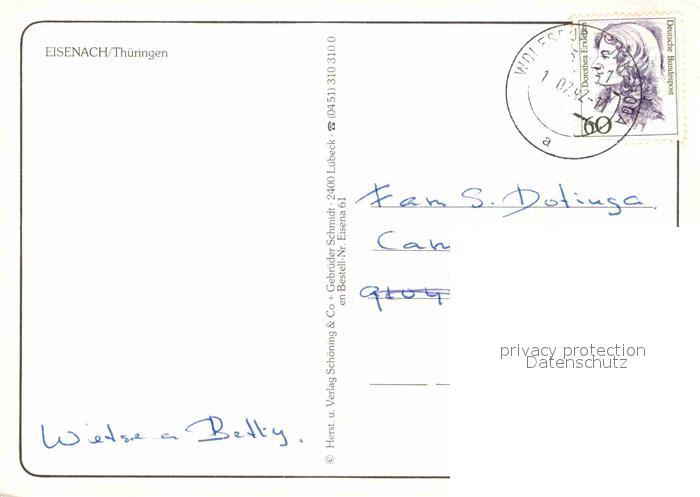 EISENACH/Thüringen
© Herst. u. Verlag Schöning & Co + Gebrüder Schmidt · 2400 Lübeck · ☎ (0451) 310 310 0
en Bestell-Nr. Eisena 61
Deutsche Bundespost
Dorothea Erxleben
60
1.07.92-17
a
Fam S. Dotinga.
Cam
privacy protection
Datenschutz
Wietse a Betty.